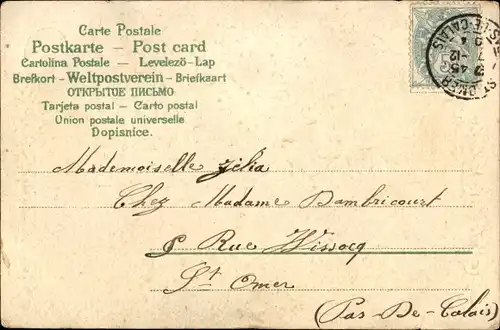 Carte Postale
Postkarte – Post card
Cartolina Postale – Levelező-Lap
Brefkort – Weltpostverein – Briefkaart
ОТКРЫТОЕ ПИСЬМО
Tarjeta postal – Carto postal
Union postale universelle
Dopisnice.
Mademoiselle Zélia
Chez Madame Dambricourt
Rue Wissocq
St Omer
(Pas-De-Calais)
ST OMER
7 45
7 - 12
04
PAS-DE-CALAIS